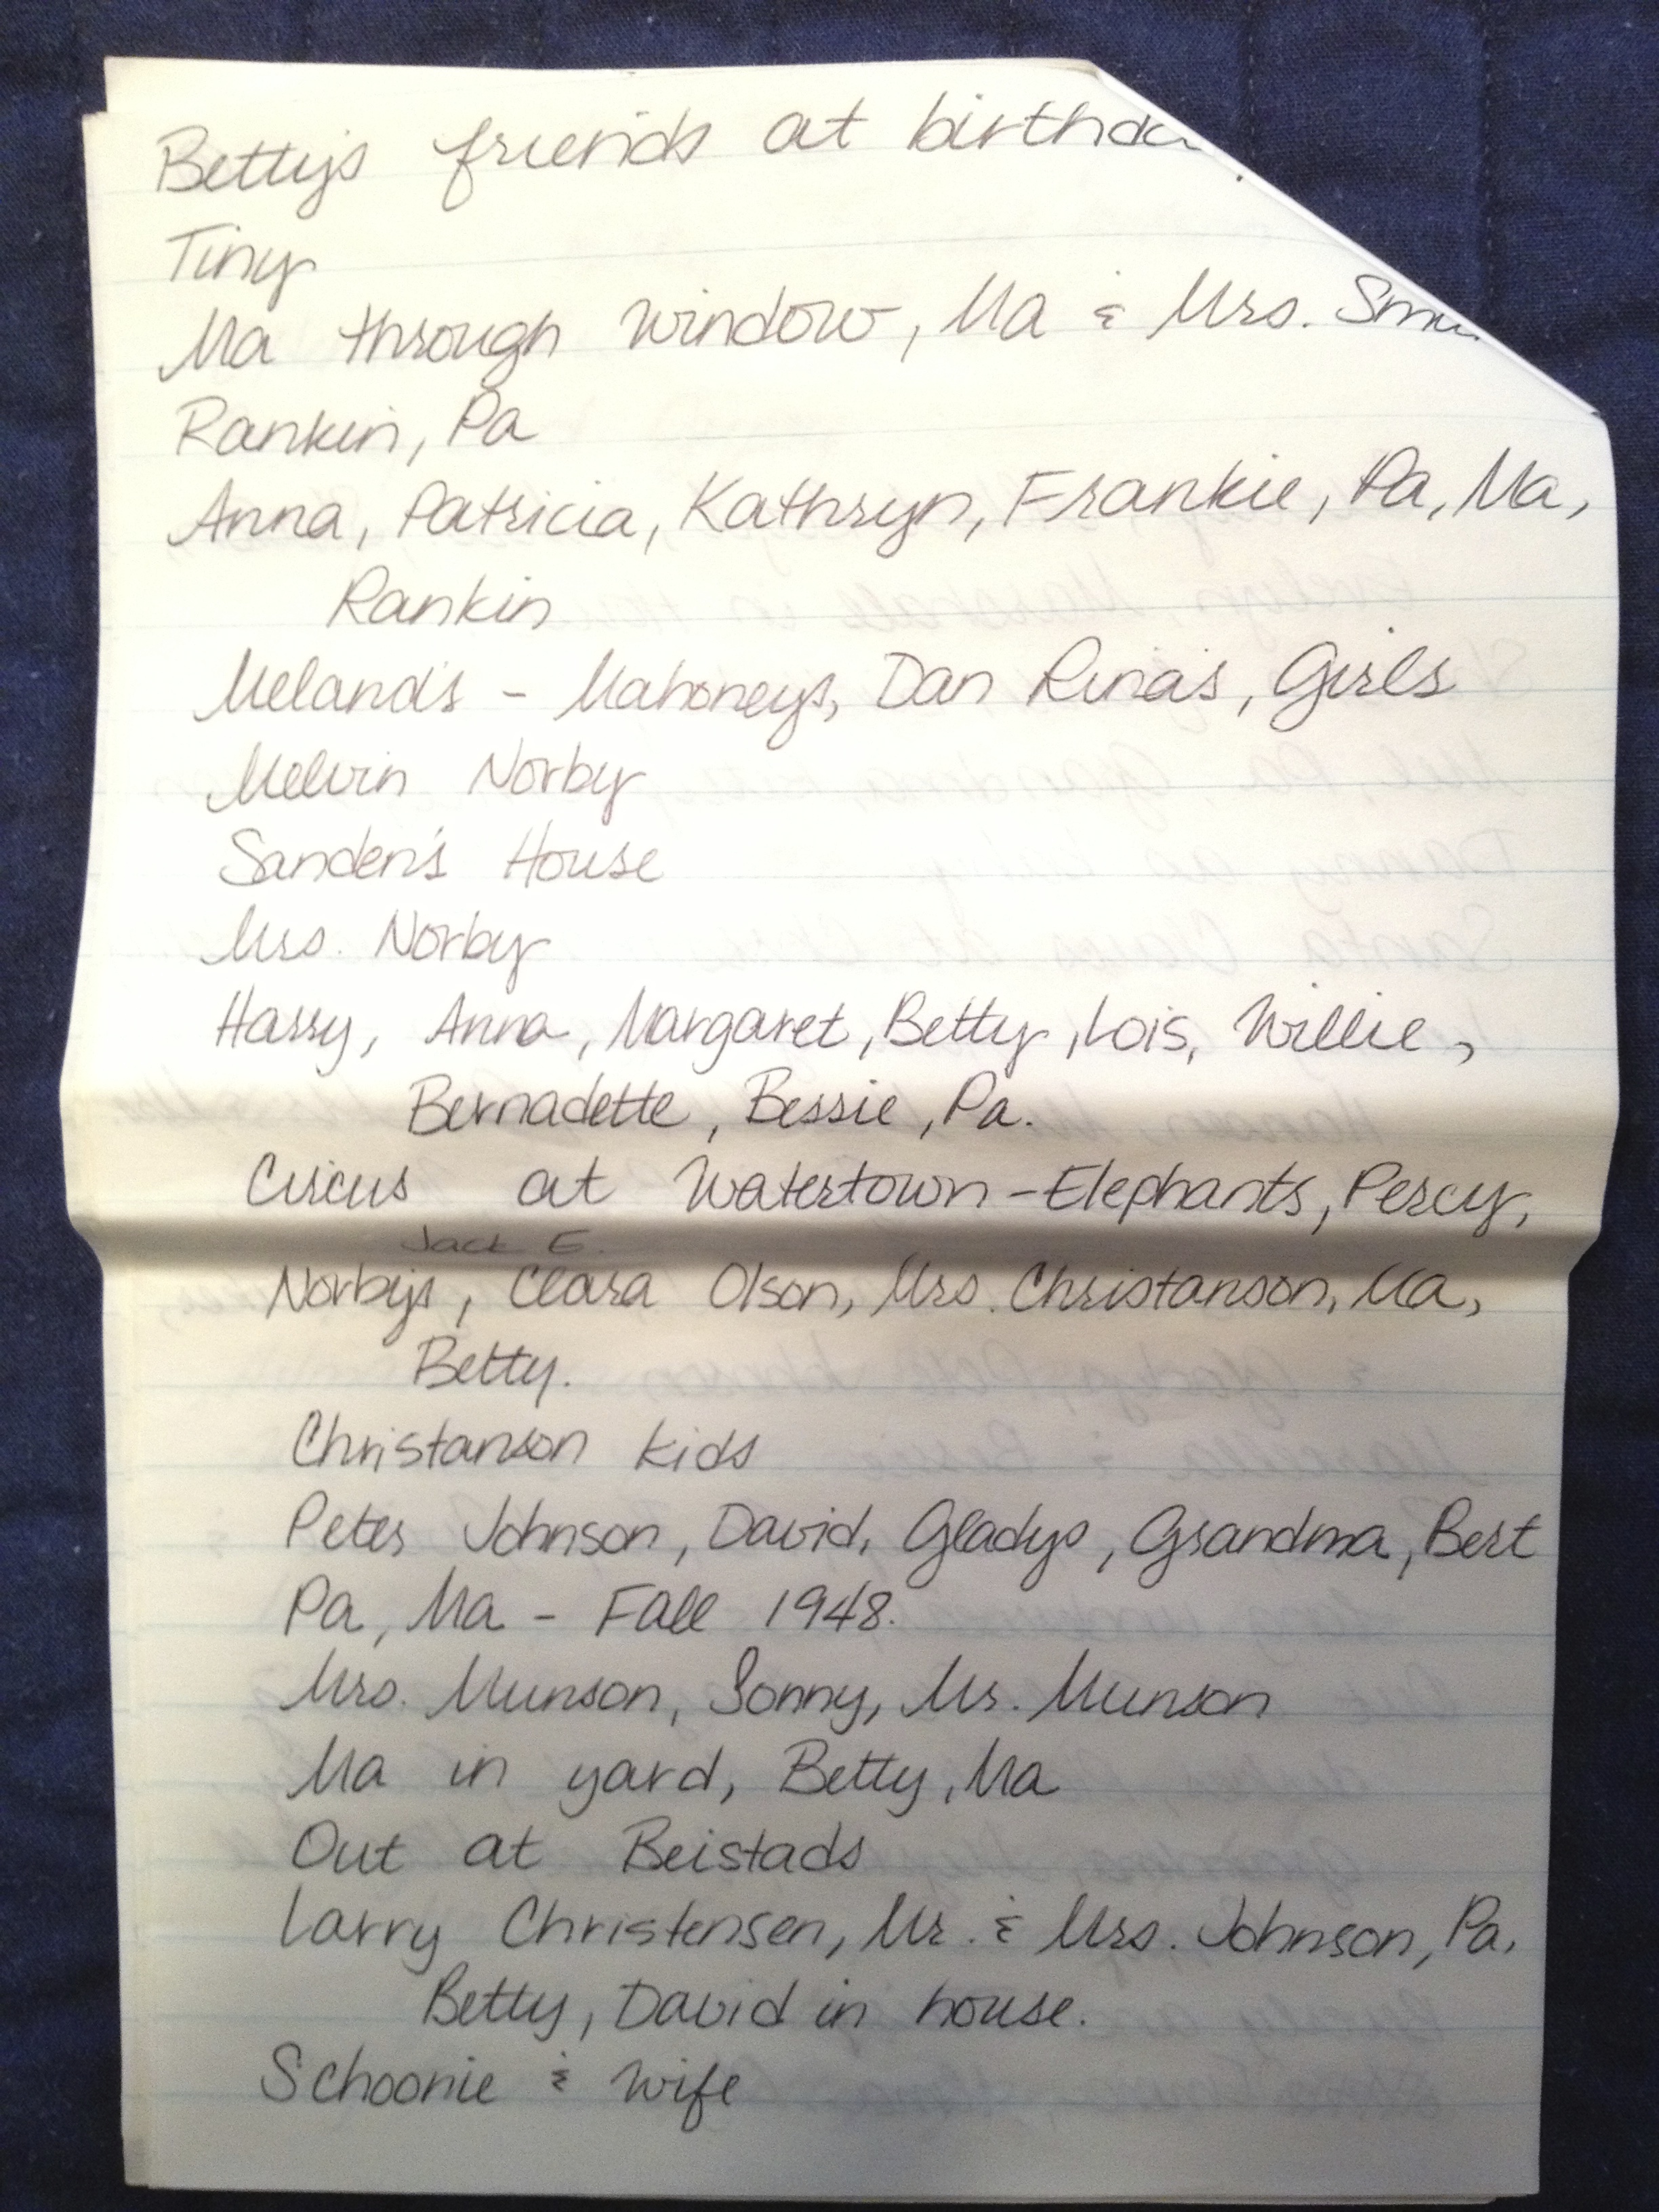 Betty's friends at birthda
Tiny
Ma through window, Ma & Mrs.
Rankin, Pa
Anna, Patricia, Kathryn, Frankie, Pa, Ma,
Rankin
Meland's - Mahoneys, Dan Rina's, Girls
Melvin Norby
Sanden's House
Mrs. Norby
Harry, Anna, Margaret, Betty, Lois, Willie,
Bernadette, Bessie, Pa.
Circus at Watertown - Elephants, Percy,
Jack E.
Norby's, Clara Olson, Mrs. Christanson, Ma,
Betty.
Christanson kids
Peter Johnson, David, Gladys, Grandma, Bert
Pa, Ma - Fall 1948.
Mrs. Munson, Sonny, Mr. Munson
Ma in yard, Betty, Ma
Out at Beistads
Larry Christensen, Mr. & Mrs. Johnson, Pa,
Betty, David in house.
Schoonie & wife